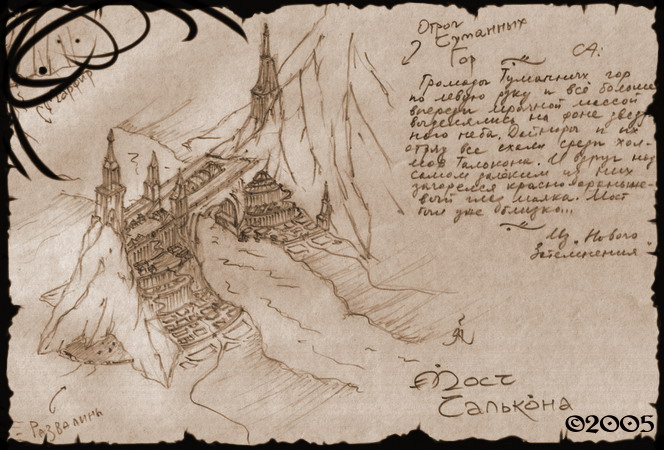 Отрог
Туманных
Гор
СА:
Громады Туманных гор
по левую руку и всё больше
впереди мрачной массой
выделялись на фоне звёзд
ного неба. и их
отряд все ехали среди хол-
мов Талькона. И вдруг на
самом далёком из них
загорелся красно
вый глаз маяка. Мост
был уже близко...
Из "Нового
Затемнения"
Мост
Талькона
Развалины
©2005